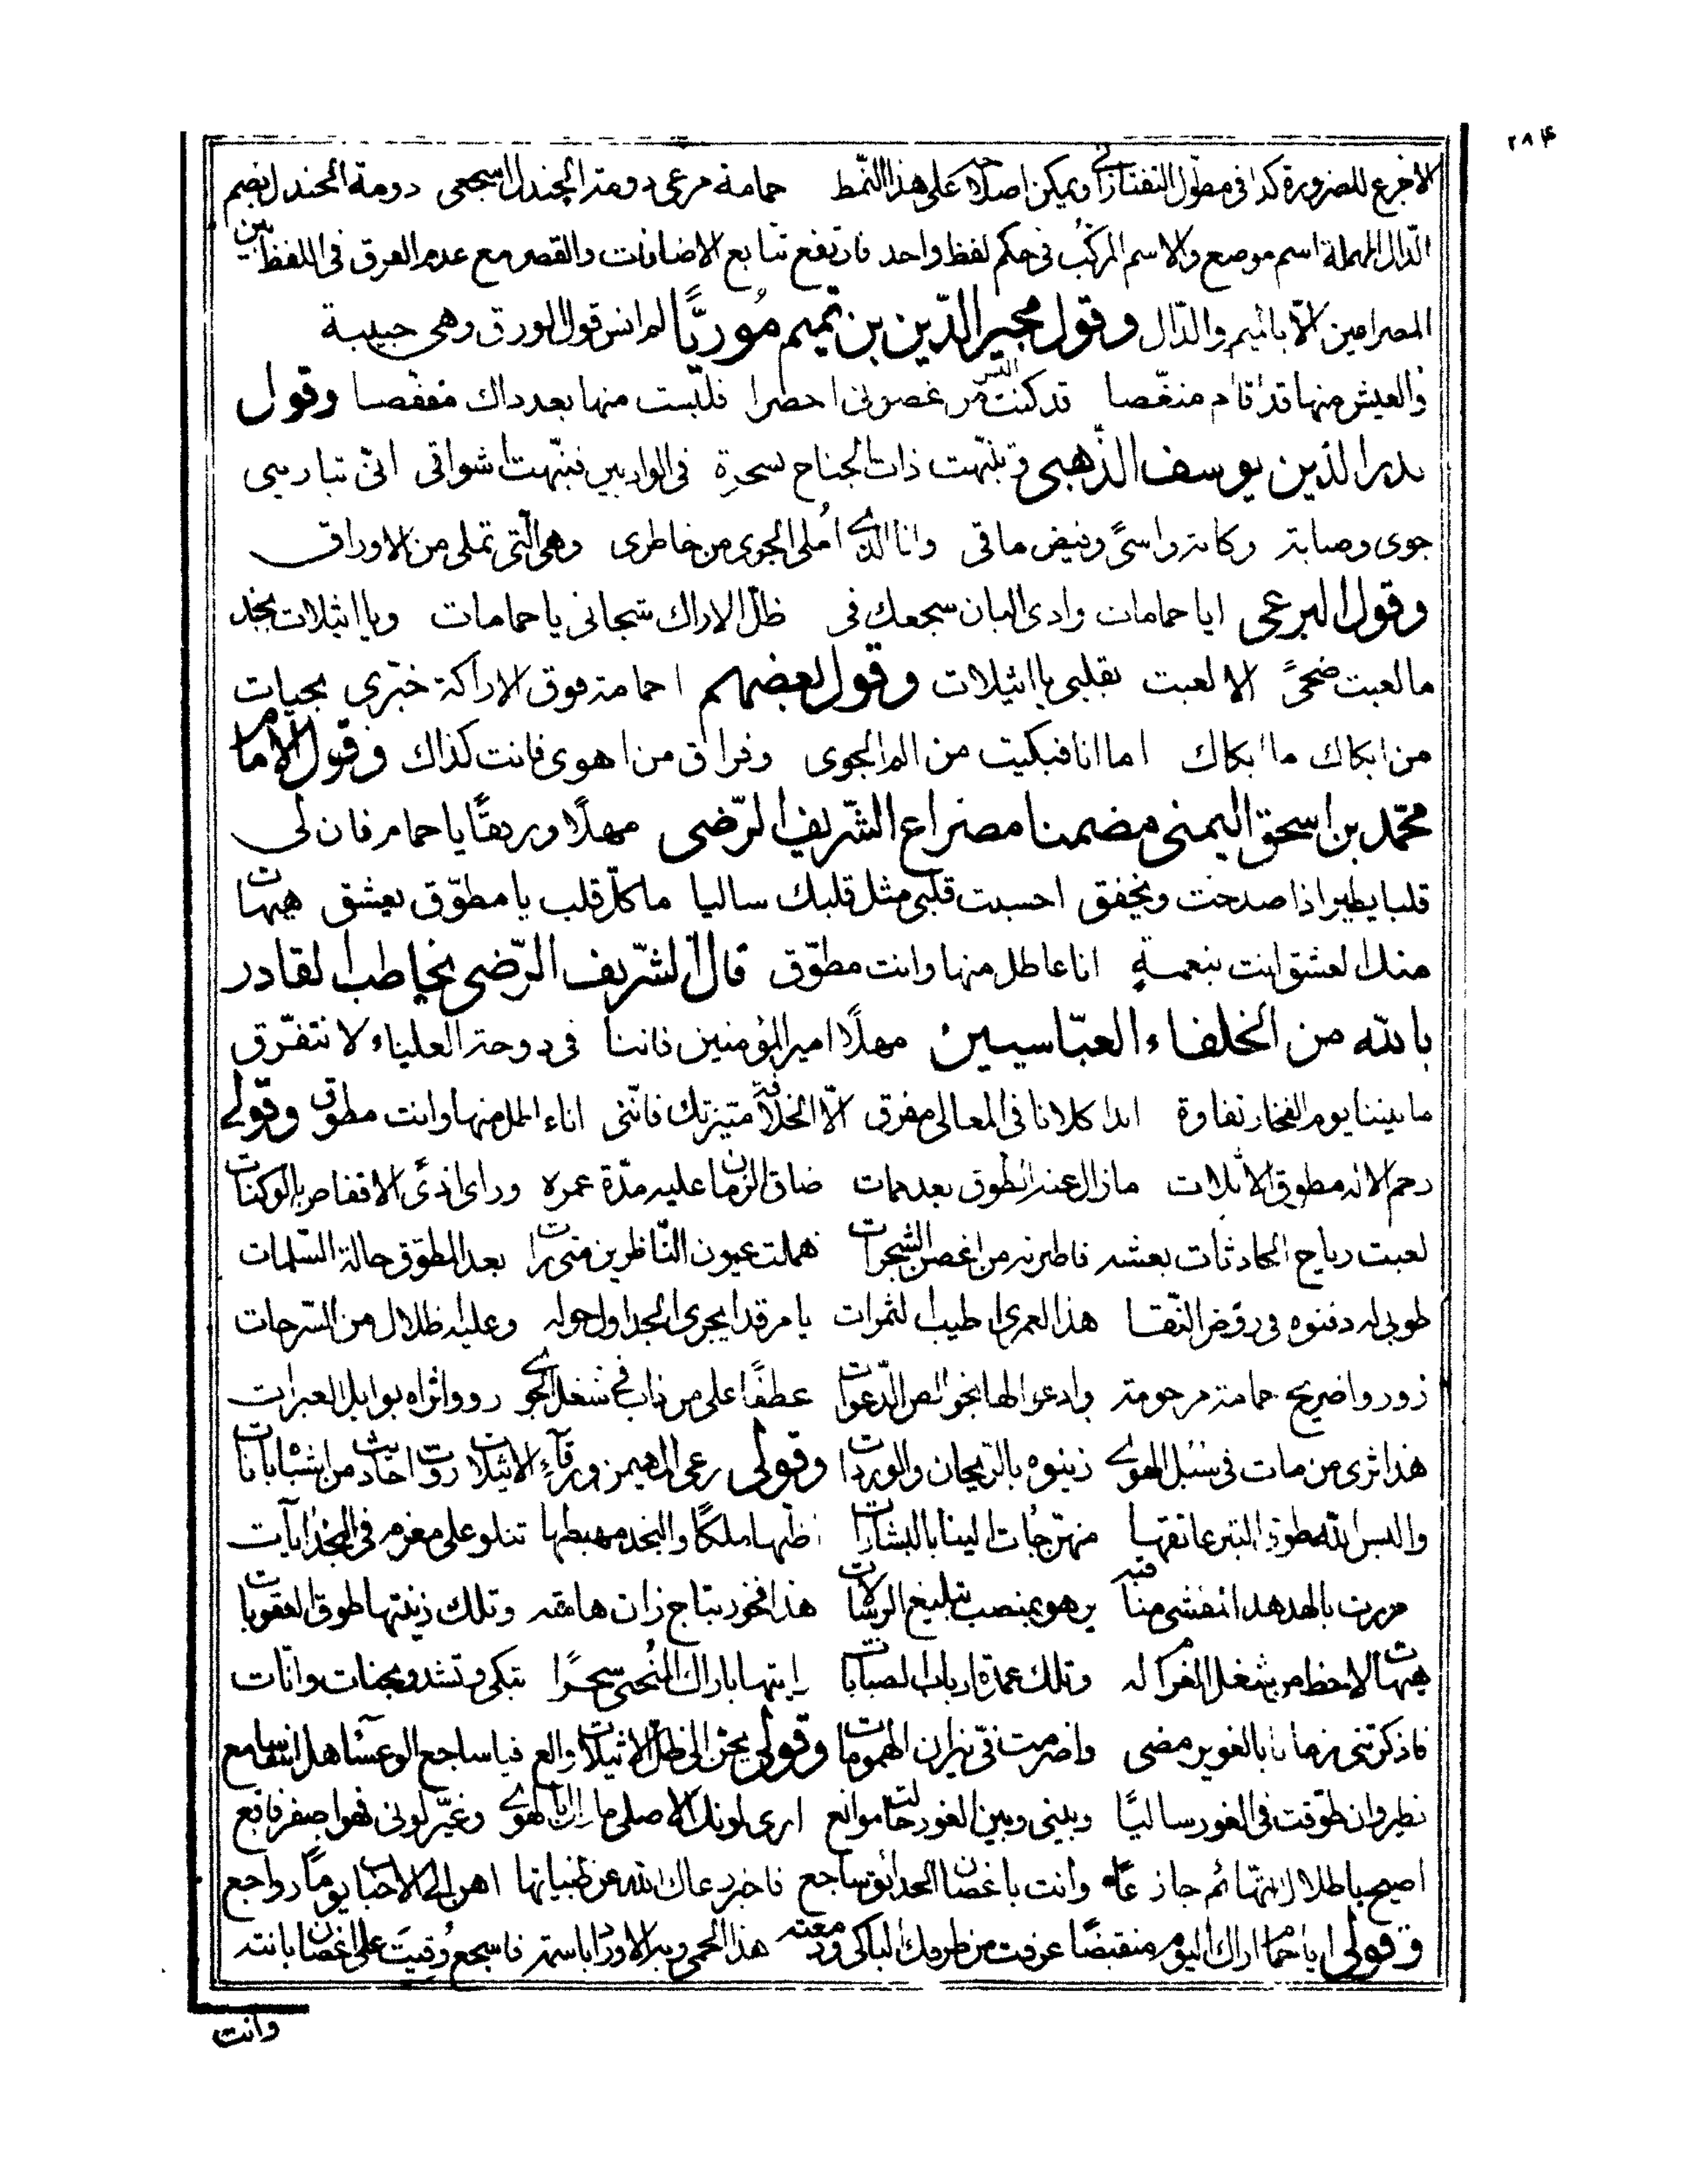 ۲۸۴
الاجرع للضرورة كذا فى مطول التفتازانى ويمكن اصلاحه على هذا النمط حمامة مرعى دومة الجندل اسجعى دومة الجندل بضم
الدال المهملة اسم موضع والاسم المركب فى حكم لفظ واحد فارتفع تتابع الاضافات والقصر مع عدم الفرق فى اللفظ بين
المصراعين الا بالميم والدال وقول مجير الدين بن تميم موريًّا لم انس قول الورق وهى حبيسة
والعيش منها قد اقام منغصا قد كنت البس من غصونى اخضرا فلبست منها بعد ذاك مقفصا وقول
بدر الدين يوسف الذهبى وتنبهت ذات الجناح بسحرة فى الواديين فنبهت اشواقى انى تبارينى
جوى وصبابة وكابة واسىً وفيض ماقى وانا الذى املى الجوى من خاطرى وهى التى تملى من الاوراق
وقول البرعى ايا حمامات وادى البان سجعك فى ظل الاراك شجانى يا حمامات ويا اثيلات نجد
ما لعبت ضحىً الا لعبت بقلبى يا اثيلات وقول بعضهم احمامة فوق الاراكة خبرى بحيات
من ابكاك ما ابكاك اما انا فبكيت من الم الجوى وفراق من اهوى فانت كذاك وقول الامام
محمد بن اسحق اليمنى مضمنا مصراع الشريف الرضى مهلًا ورفقًا يا حمام فان لى
قلبا يطير اذا صدحت ويخفق احسبت قلبى مثل قلبك ساليا ما كل قلب يا مطوق يعشق هيهات
منك العشق انت بنعمة انا عاطل منها وانت مطوق قال الشريف الرضى يخاطب القادر
بالله من الخلفاء العباسيين مهلًا امير المؤمنين فاننا فى دوحة العلياء لا نتفرق
ما بيننا يوم الفخار تفاوة ابدا كلانا فى المعالى مفرق الا الخلافة ميزتك فاننى انا عاطل منها وانت مطوق وقولى
رحم الاله مطوق الاثلات ما زال عنه الطوق بعد ممات ضاق الزمان عليه مدة عمره وراى اذى الاقفاص بالوكنات
لعبت رياح الحادثات بعشه فاطرنه من اغصن الشجرات هملت عيون الناظرين متى رات بعد المطوق حالة السلمات
طوبى له دفنوه فى روض النقا هذا لعمرى اطيب الثمرات يا مرقدا يجرى الجداول حوله وعليه ظلال من السرحات
زوروا ضريح حمامة مرحومة وادعوا لها بخوالص الدعوات عطفًا على من ذاب فى شغل الجوى رووا ثراه بوابل العبرات
هذا ثرى من مات فى سبل الهوى زينوه بالريحان والوردات وقولى رعى المهيمن ورقاء الاثيلات روت احاديث من اشبابانات
والبس الله طوق التبر عاتقها منهتر جات الينا بالبشارات اظنها ملكًا والنجد مهبطها تتلو على مغرم فى النجد آيات
مررت بالهدهد انفشى مناقبه يزهو بمنصب تبليغ الرسالات هذا فخور بتاج زان هامته وتلك زينتها طوق العقوبات
هيهات لاحظ من شغل الغرام له وتلك عمدة ارباب الصبابات رايتها باراك المنحنى سحرًا تبكى وتشدو بحنات وانات
فاذكرتنى زمانا بالغوير مضى واضرمت فى نيران الهمومات وقولى يحن الى ظل الاثيلات والع فيا ساجع الوعساء هل انت سامع
نظير وان طوقت فى الغور ساليًا وبينى وبين الغور حالت موانع ارى لونك الاصلى ما زال بالهوى وغير لونى فهو اصفر فاقع
اصيح باطلال التهائم جازعًا وانت باغصان الحدائق ساجع فاخبر رعاك الله عن ظبياتها اهن الى الاحباب يومًا رواجع
وقولى ايا حمام اراك اليوم منقبضًا عرفت من طرفك الباكى ودمعته هذا الحمى وبه الاوراد باسمة فاسجع وقيت على اغصان بانته
وانت